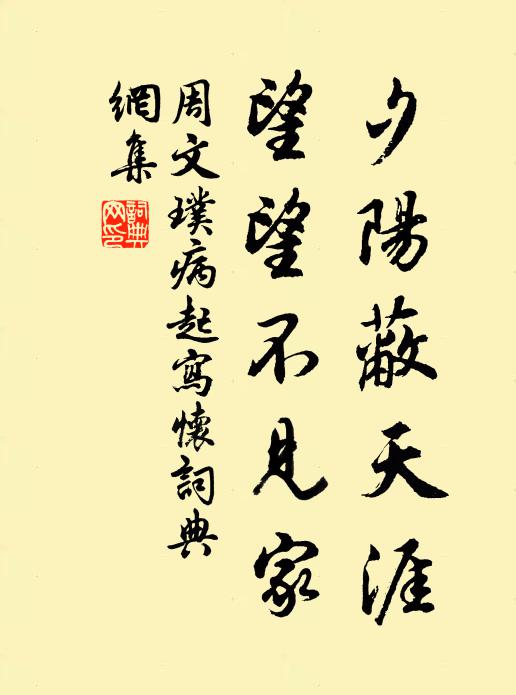 夕陽蔽天涯
望望不見家
周文璞病起寫懷詞典
網集
詞典
网印